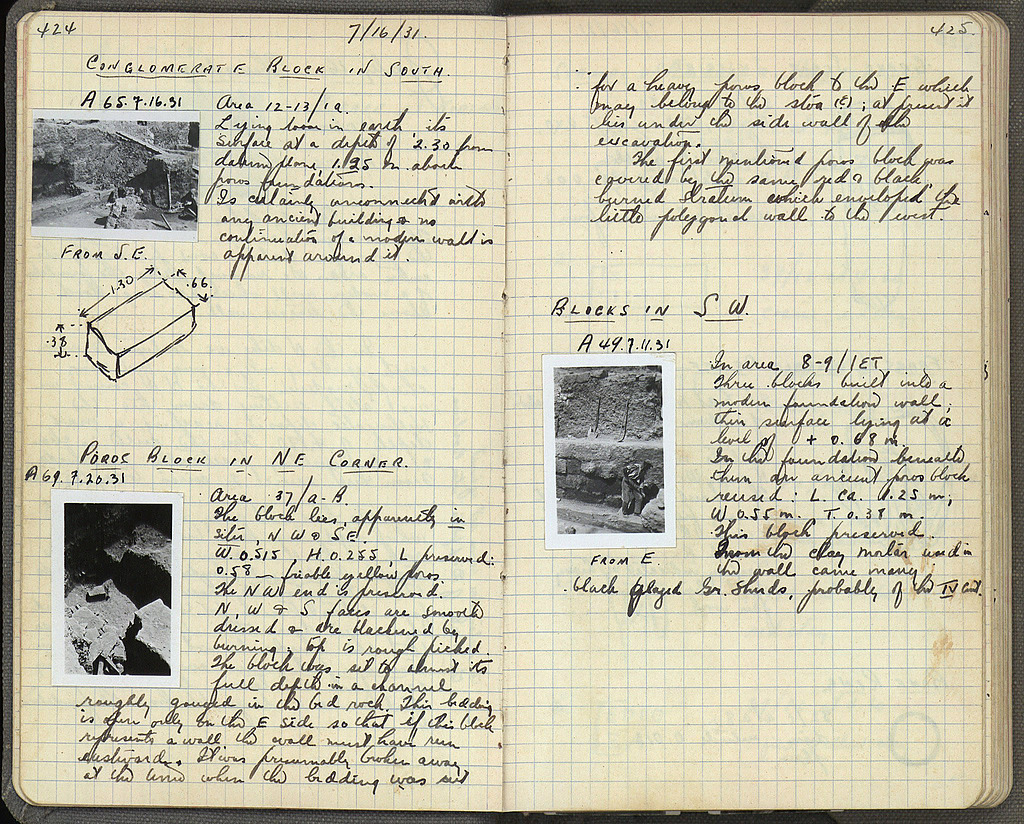 424
7/16/31.
CONGLOMERATE BLOCK IN SOUTH.
A 65.7.16.31
Area 12-13/1a
Lying loose in earth, its
surface at a depth of 2.30 from
datum plane, 1.95 m. above
poros foundations.
Is certainly unconnected with
any ancient building & no
continuation of a modern wall is
apparent around it.
FROM S.E.
1.30
.66
.38
POROS BLOCK IN NE CORNER.
A 69.7.20.31
Area 37/a-B
The block lies, apparently in
situ, NW & SE
W. 0.515, H. 0.255, L preserved:
0.58 – friable yellow poros.
The NW end is preserved.
N, W & S faces are smooth
dressed & are blackened by
burning; top is rough picked.
The block was set to almost its
full depth in a channel
roughly gouged in the bed rock. This bedding
is seen only on the E side so that if this block
represents a wall the wall must have run
eastward. It was presumably broken away
at the time when the bedding was cut
425.
for a heavy poros block to the E which
may belong to the stoa (E); at present it
lies under the side wall of the
excavation.
The first mentioned poros block was
covered by the same red & black
burned stratum which enveloped the
little polygonal wall to the west.
BLOCKS IN S W.
A 49.7.11.31
In area 8-9/ΙΕΤ
Three blocks built into a
modern foundation wall;
their surface lying at a
level of + 0.68 m.
In the foundation beneath
them an ancient poros block
reused: L. ca. 1.25 m,
W 0.55 m. T. 0.38 m.
This block preserved.
From the clay mortar used in
the wall came many
black glazed Gr. sherds, probably of the IV Cent.
FROM E.